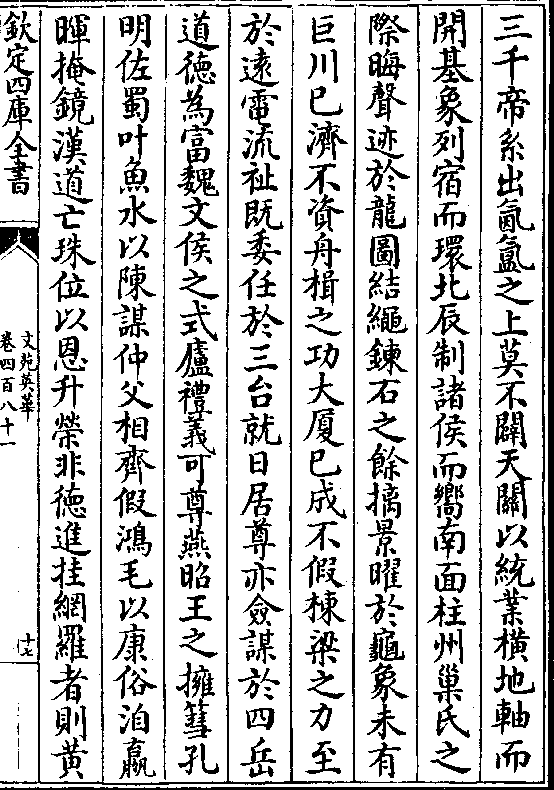 三千帝系出氤氳之上莫不闢天關以統業橫地軸而
開基象列宿而環北辰制諸侯而嚮南面柱州巢氏之
際晦聲迹於龍圖結繩鍊石之餘摛景曜於龜象未有
巨川已濟不資舟楫之功大厦已成不假棟梁之力至
於遠雷流祉既委任於三台就日居尊亦僉謀於四岳
道德為富魏文侯之式廬禮義可尊燕昭王之擁篲孔
明佐蜀叶魚水以陳謀仲父相齊假鴻毛以康俗洎嬴
暉掩鏡漢道亡珠位以恩升榮非德進挂網羅者則黄
欽定四庫全書
文苑英華
卷四百八十一
十七